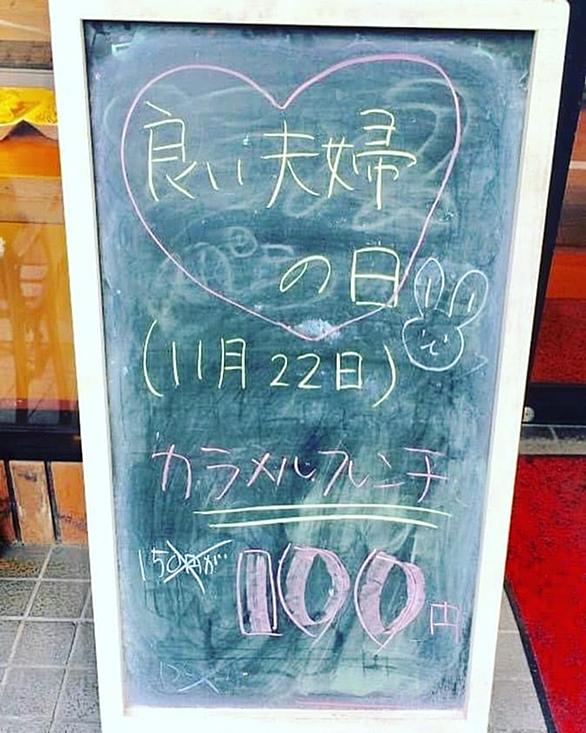 良い夫婦
の日
(11月22日)
カラメルフレンチ
150円が…
100円